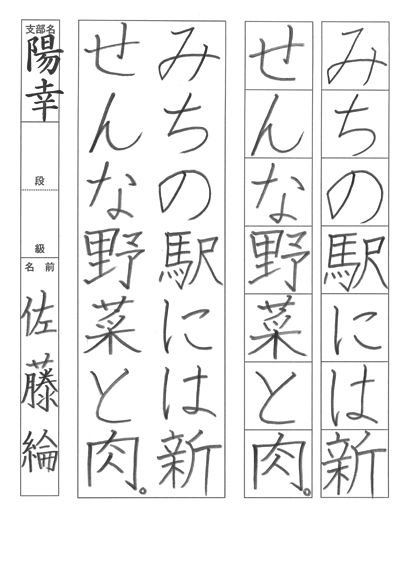 みちの駅には新
せんな野菜と肉。
みちの駅には新
せんな野菜と肉。
支部名
陽幸
段
級
名前
佐藤綸